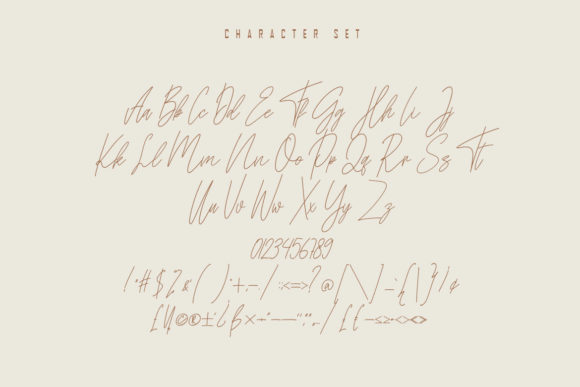 CHARACTER SET
Aa Bb Cc Dd Ee Ff Gg Hh Ii Jj
Kk Ll Mm Nn Oo Pp Qq Rr Ss Tt
Uu Vv Ww Xx Yy Zz
0123456789
! " # $ % & ( ) * + , - . / : ; < = > ? @ [ \ ] _ { | } ¢
© ® ± ¿ ß × ÷